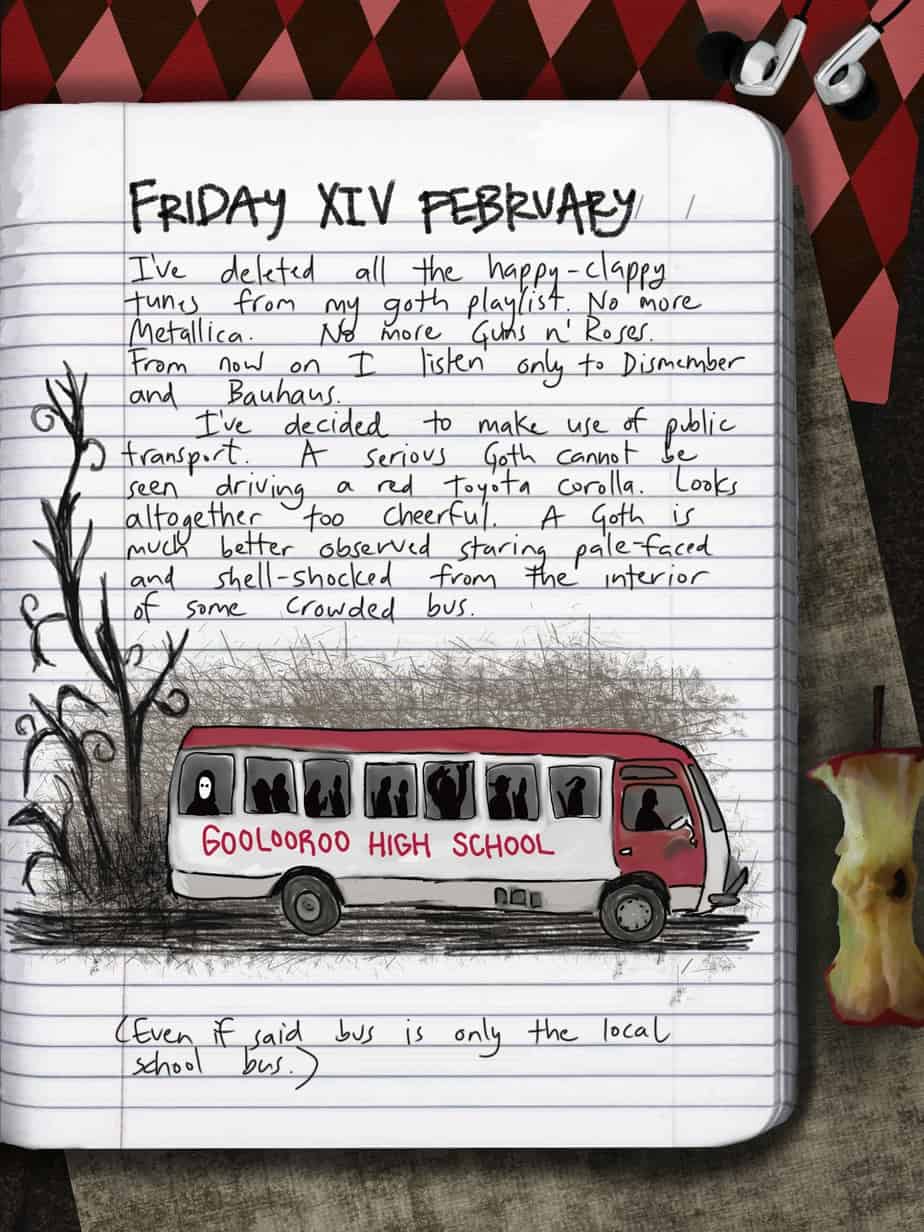 FRIDAY XIV FEBRUARY
I've deleted all the happy-clappy
tunes from my goth playlist. No more
Metallica. No more Guns n' Roses.
From now on I listen only to Dismember
and Bauhaus.
I've decided to make use of public
transport. A serious Goth cannot be
seen driving a red Toyota Corolla. Looks
altogether too cheerful. A Goth is
much better observed staring pale-faced
and shell-shocked from the interior
of some crowded bus.
GOOLOOROO HIGH SCHOOL
(Even if said bus is only the local
school bus.)